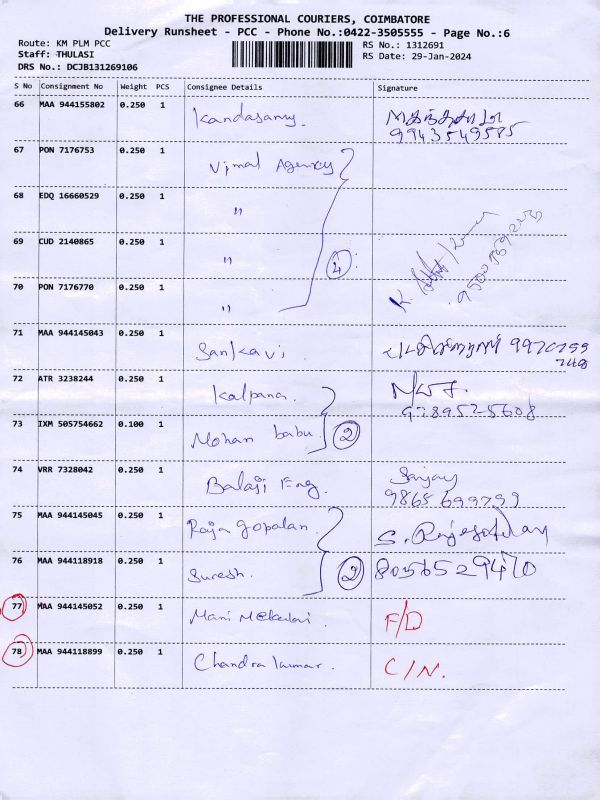 THE PROFESSIONAL COURIERS, COIMBATORE
Delivery Runsheet - PCC - Phone No.:0422-3505555 - Page No.:6
Route: KM PLM PCC
RS No.: 1312691
Staff: THULASI
RS Date: 29-Jan-2024
DRS No.: DCJB131269106
S No Consignment No Weight PCS Consignee Details Signature
66 MAA 944155802 0.250 1 Kandasamy
9943549585
67 PON 7176753 0.250 1 Vimal Agency
68 EDQ 16660529 0.250 1 "
69 CUD 2140865 0.250 1 " 4
70 PON 7176770 0.250 1 "
71 MAA 944145043 0.250 1 Sankavi
72 ATR 3238244 0.250 1 Kalpana.
73 IXM 505754662 0.100 1 Mohan babu 2
74 VRR 7328042 0.250 1 Balaji Eng. Sanjay
9865699799
75 MAA 944145045 0.250 1 Raja gopalan
76 MAA 944118918 0.250 1 Suresh. 2 8056529470
77 MAA 944145052 0.250 1 Mani F/D
78 MAA 944118899 0.250 1 Chandra kumar. C/N.